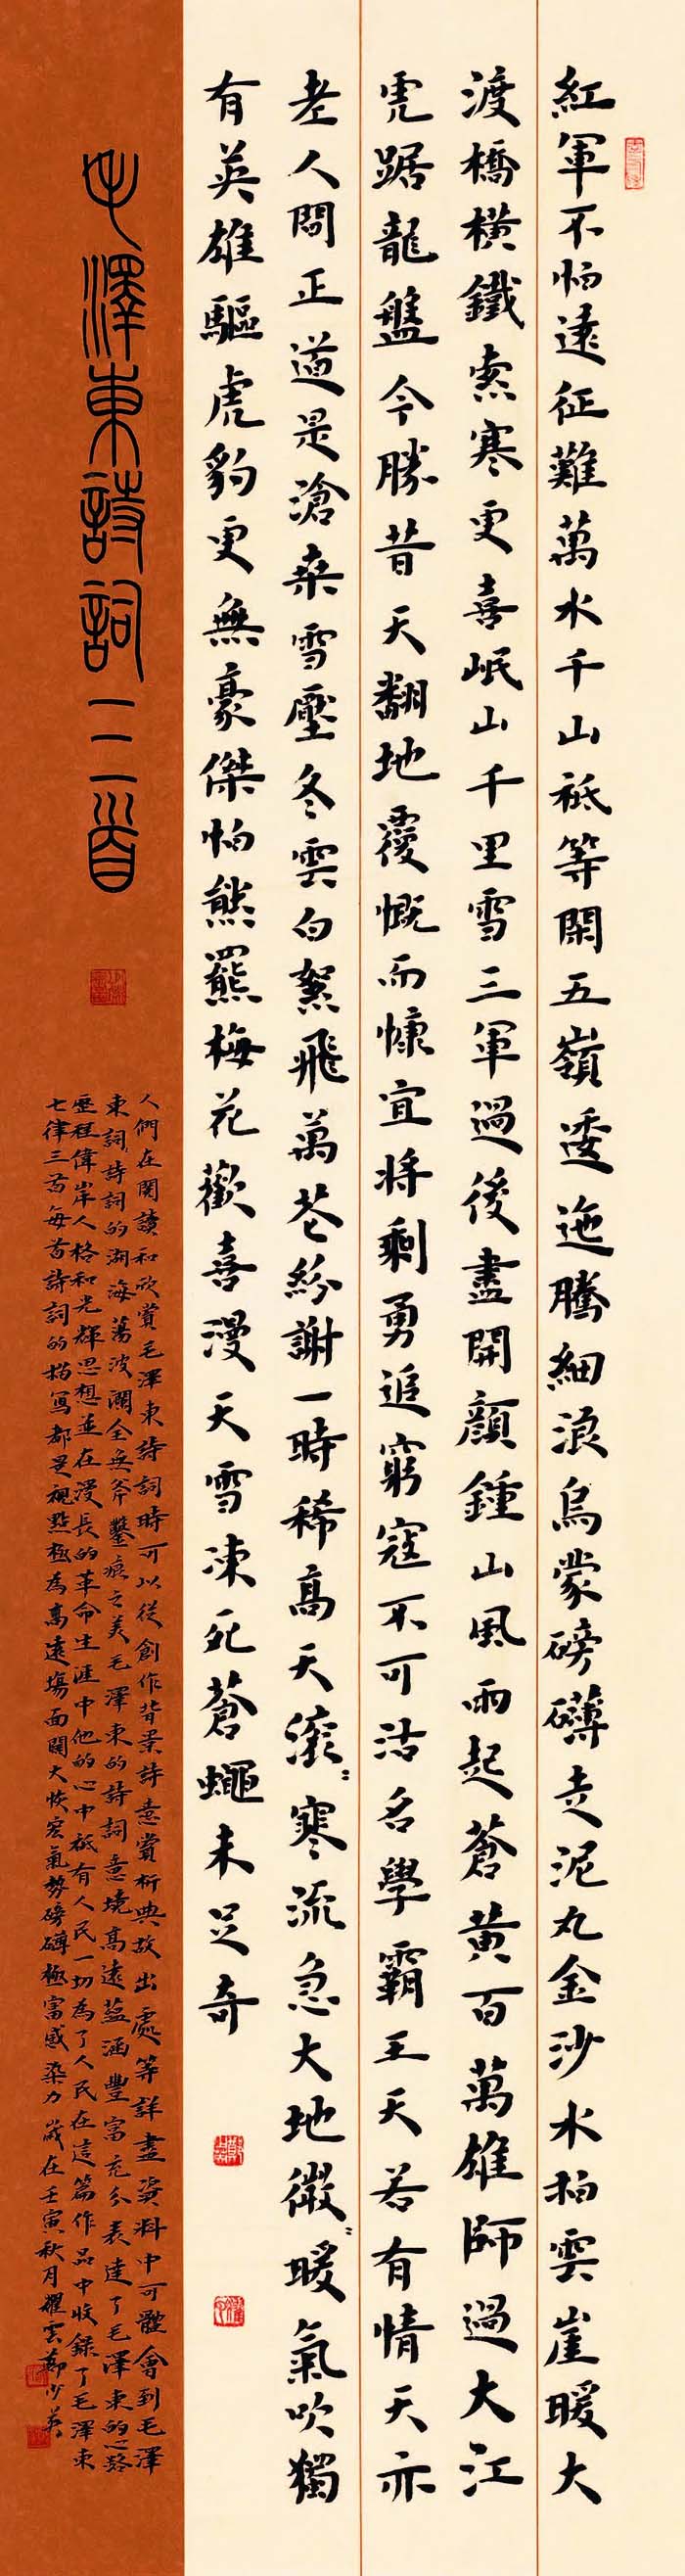 紅軍不怕遠征難萬水千山祇等閑五嶺逶迤騰細浪烏蒙磅礴走泥丸金沙水拍雲崖暖大
渡橋橫鐵索寒更喜岷山千里雪三軍過後盡開顏鍾山風雨起蒼黃百萬雄師過大江
虎踞龍盤今勝昔天翻地覆慨而慷宜將剩勇追窮寇不可沽名學霸王天若有情天亦
老人間正道是滄桑雪壓冬雲白絮飛萬花紛謝一時稀高天滾〻寒流急大地微〻暖氣吹獨
有英雄驅虎豹更無豪傑怕熊羆梅花歡喜漫天雪凍死蒼蠅未足奇
毛澤東詩詞三首
人們在閱讀和欣賞毛澤東詩詞時可以從創作背景詩意賞析典故出處等詳盡資料中可體會到毛澤
東詞詩詞的湖海蕩波瀾全無斧鑿痕之美毛澤東的詩詞意境高遠蘊涵豐富充分表達了毛澤東的心路
歷程偉岸人格和光輝思想並在漫長的革命生涯中他的心中祇有人民一切為了人民在這篇作品中收錄了毛澤東
七律三首每首詩詞的描寫都是視點極為高遠場面闊大恢宏氣勢磅礴極富感染力歲在壬寅秋月耀雲鄭少英